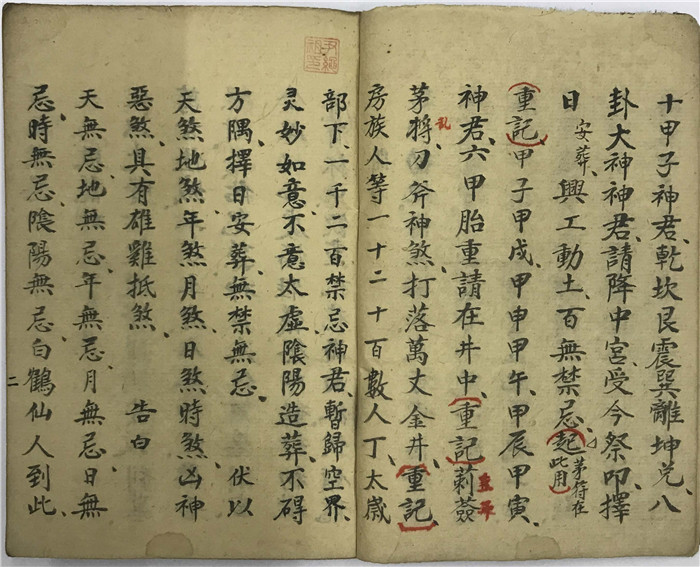 十甲子神君、乾坎艮震巽離坤兌、八
卦大神神君、請降中宮、受今祭叩、擇
日安葬、興工動土、百無禁忌、起茅符在此用
重記、甲子甲戌、甲申甲午、甲辰甲寅、
神君、六甲胎重請在井中、重記莿簽
茅將刀斧神煞、打落萬丈金井、重記、
房族人等一十二十百數人丁、太歲
部下、一千二百禁忌神君、暫歸空界、
灵妙如意不意太虛陰陽造葬、不碍
方隅、擇日安葬、無禁無忌、伏以
天煞地煞年煞月煞日煞時煞、凶神
惡煞、具有雄雞抵煞、告白
天無忌、地無忌、年無忌、月無忌、日無
忌、時無忌、陰陽無忌、白鶴仙人到此、
二